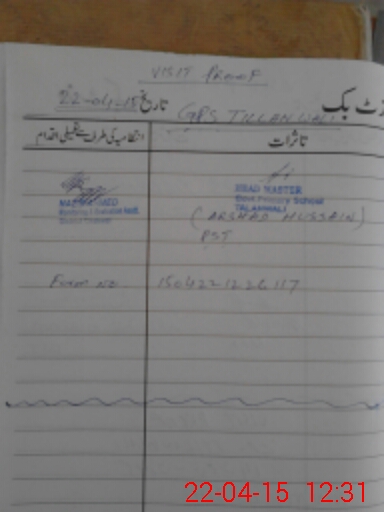 VISIT PROOF
22-04-15 تاریخ
GPS TILLANWALI
تاثرات
انتظامیہ کی طرف سے تعمیلی اقدام
HEAD MASTER
Govt Primary School
TALANWALI
(ARSHAD HUSSAIN)
PST
Form no 1504221226117
22-04-15 12:31